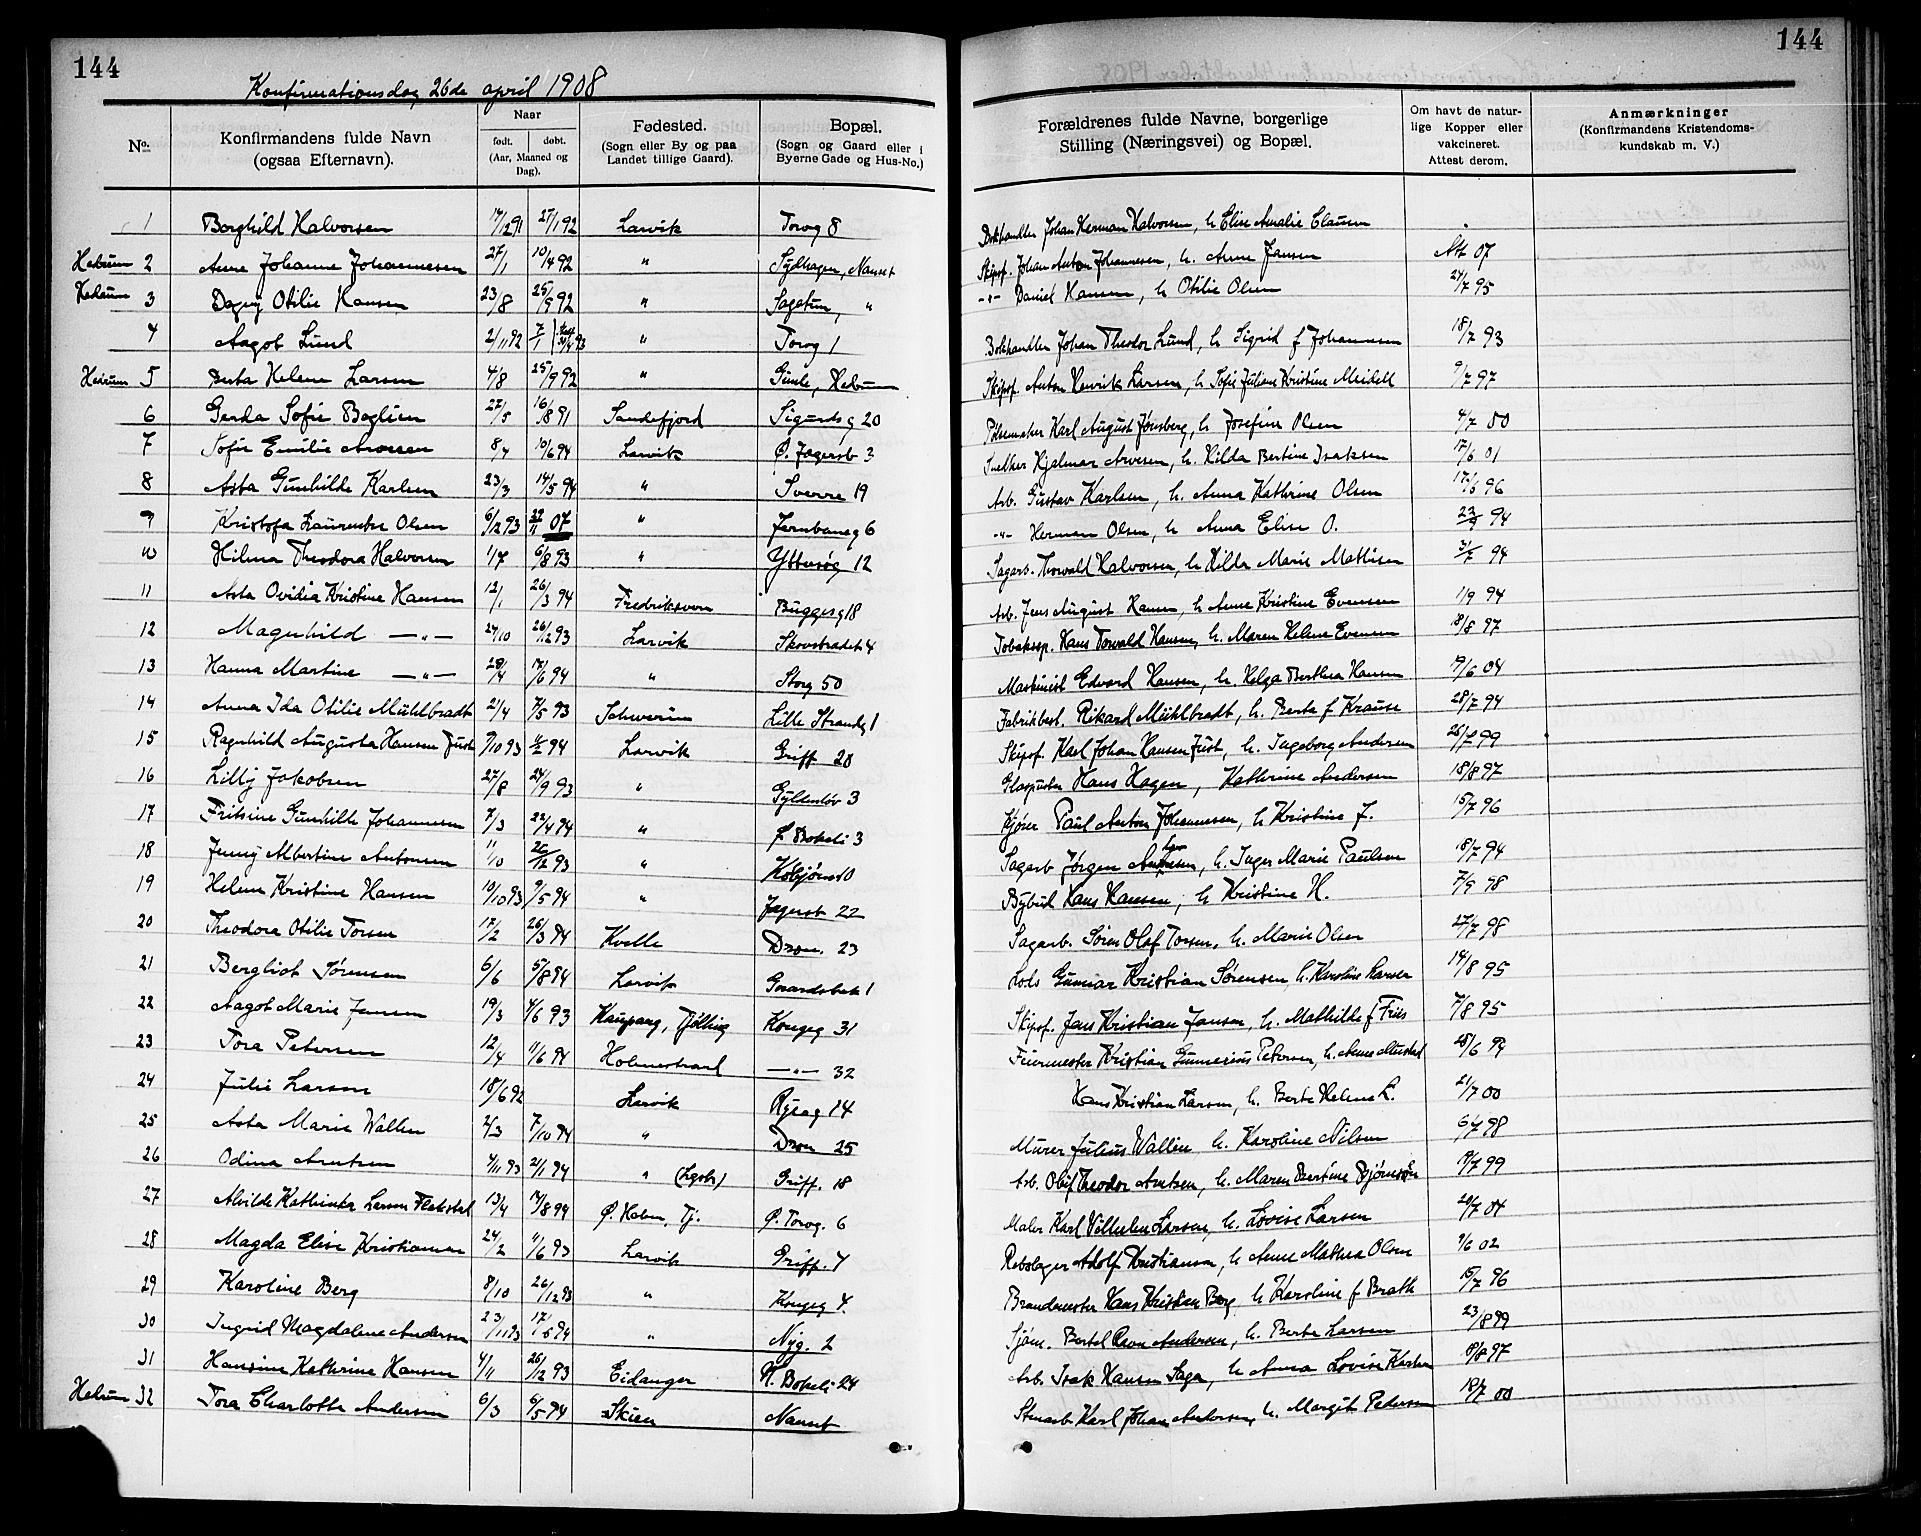 144
144
Konfirmationsdag 26de april 1908
No.
Konfirmandens fulde Navn (ogsaa Efternavn).
Naar
født. døbt.
(Aar, Maaned og Dag).
Fødested.
(Sogn eller By og paa Landet tillige Gaard).
Bopæl.
(Sogn og Gaard eller i Byerne Gade og Hus-No.)
Forældrenes fulde Navne, borgerlige Stilling (Næringsvei) og Bopæl.
Om havt de naturlige Kopper eller vakcineret. Attest derom.
Anmærkninger
(Konfirmandens Kristendomskundskab m. V.)
1 Borghild Halvorsen 17/12 91 27/1 92 Larvik Torvg 8 Bokhandler Johan Herman Halvorsen, h. Elise Amalie Clausen
Hedrum 2 Anne Johanne Johannesen 27/1 10/4 92 " Sydhagen, Nanset Skipsf. Johan Anton Johannesen, h. Anne Jansen Att 07
Hedrum 3 Dagny Otilie Hansen 23/8 25/9 92 " Sagatun, " -"- Daniel Hansen, h Otilie Olsen 24/7 95
4 Aagot Lund 2/11 92 " Torvg 1 Bokhandler Johan Theodor Lund, h Sigrid f Johannesen 18/7 93
Hedrum 5 Berta Helene Larsen 4/8 25/9 92 " Gimle, Hedrum Skipsf. Anton Henrik Larsen, h. Sofie Juliane Kristine Meidell 9/7 97
6 Gerda Sofie Boglien 27/5 16/8 91 Sandefjord Sigurdsg 20 Pølsemaker Karl August Jønsberg, h Josefine Olsen
7 Sofie Emilie Arvesen 8/4 10/6 94 Larvik Ø. Jægersb 3 Snedker Hjalmar Arvesen, h. Hilda Bertine Isaksen 17/6 01
8 Asta Gunhilde Karlsen 23/3 14/5 94 " Sverre 19 Arb. Gustav Karlsen, h. Anna Kathrine Olsen 17/6 96
9 Kristofa Laurentse Olsen 6/12 93 22/11 07 " Jernbaneg 6 -"- Herman Olsen, h Anna Elise O. 23/9 94
10 Hilma Theodora Halvorsen 1/7 6/8 93 " Yttersøg 12 Sagarb. Thorvald Halvorsen, h Hilda Marie Mathisen 31/7 94
11 Asta Ovidia Kristine Hansen 12/1 26/3 94 Fredriksvern Buggesg 18 Arb. Jens August Hansen, h Anne Kristine Evensen 1/9 94
12 Magnhild -"- 24/10 26/12 93 Larvik Skovbradet 4 Tobaksp. Hans Torvald Hansen, h. Maren Helene Evensen 8/8 97
13 Hanna Martine -"- 28/4 17/6 94 " Storg 50 Maskinist Edvard Hansen, h. Helga Berthea Hansen 19/6 04
14 Anna Ida Otilie Mühlbradt 21/4 7/5 93 Schwerin Lille Strandg 1 Fabrikbest. Rikard Mühlbradt, h. Berta f Krause 28/7 94
15 Ragnhild Augusta Hansen Just 9/10 93 4/2 94 Larvik Griff 28 Skipsf. Karl Johan Hansen Just, h. Ingeborg Andersen 28/7 99
16 Lilly Jakobsen 27/8 24/9 93 " Gyldenløv 3 Glaspuster Hans Hagen, Kathrine Andersen 18/8 97
17 Fritzine Gunhilde Johannesen 7/3 22/4 94 " Ø Bøkeli 3 Kjører Paul Anton Johannesen, h Kristine J. 15/7 96
18 Jenny Albertine Antonsen 11/10 26/12 93 " Kolbjørns 10 Sagarb Jørgen , h. Inger Marie Paulsen 18/7 94
19 Helene Kristine Hansen 10/10 93 9/5 94 " Jegersb 22 Bybud Hans Hansen, h Kristine H. 7/9 98
20 Theodora Otilie Torsen 17/2 26/3 94 Kvelle Dron. 23 Sagarb. Søren Olaf Torsen, h. Marie Olsen 27/7 98
21 Bergliot Sørensen 6/6 5/8 94 Larvik Grandebak 1 Lods Gunnar Kristian Sørensen h. Karoline Larsen 14/8 95
22 Aagot Marie Jansen 19/3 4/6 93 Kaupang, Tjølling Kongeg 31 Skipsf. Jans Kristian Jansen, h. Mathilde f Fries 7/8 95
23 Tora Petersen 12/4 11/6 94 Holmestrand -"- 32 Furermester Kristian Gunnerius Petersen, h. 28/6 94
24 Julie Larsen 18/6 92 Larvik Rysag 14 Hans Kristian Larsen, h. Berte Helene L. 21/7 00
25 Asta Marie Wallin 2/3 7/10 94 " Dron 25 Murer Julius Wallin h. Karoline Nilsen 6/7 98
26 Odina Arntsen 4/11 93 2/1 94 " Griff. 18 Arb. Oluf Theodor Arntsen, h. Maren Bertine Bjørnsen 19/7 99
27 Alvilde Kathinka Larsen 13/4 19/8 94 Ø. Holm, Tj. Ø. Torvg. 6 Maler Karl Vilhelm Larsen, h. Lovise Larsen 20/7 04
28 Magda Elise Kristiansen 24/2 11/6 93 Larvik Griff. 4 Rebslager Adolf Kristiansen, h Anne Mathea Olsen 9/6 02
29 Karoline Berg 8/10 26/12 93 " Kongeg 4. Brandmester Hans Kristian Berg, h Karoline f Brath 15/7 96
30 Ingrid Magdalene Andersen 23/11 93 " Nyg. 2 Sjøm. Bertel Ravn Andersen, h. Berte Larsen 23/8 99
31 Hansine Kathrine Hansen 4/11 26/12 93 Eidanger N. Bøkeli 24 Arb. Isak Hansen Saga, h Anna Lovise Karlsen 8/8 97
Hedrum 32 Tora Charlotte Andersen 6/3 6/5 94 Skien Nanset Stenarb Karl Johan Andersen, h. Margit Pedersen 12/7 00